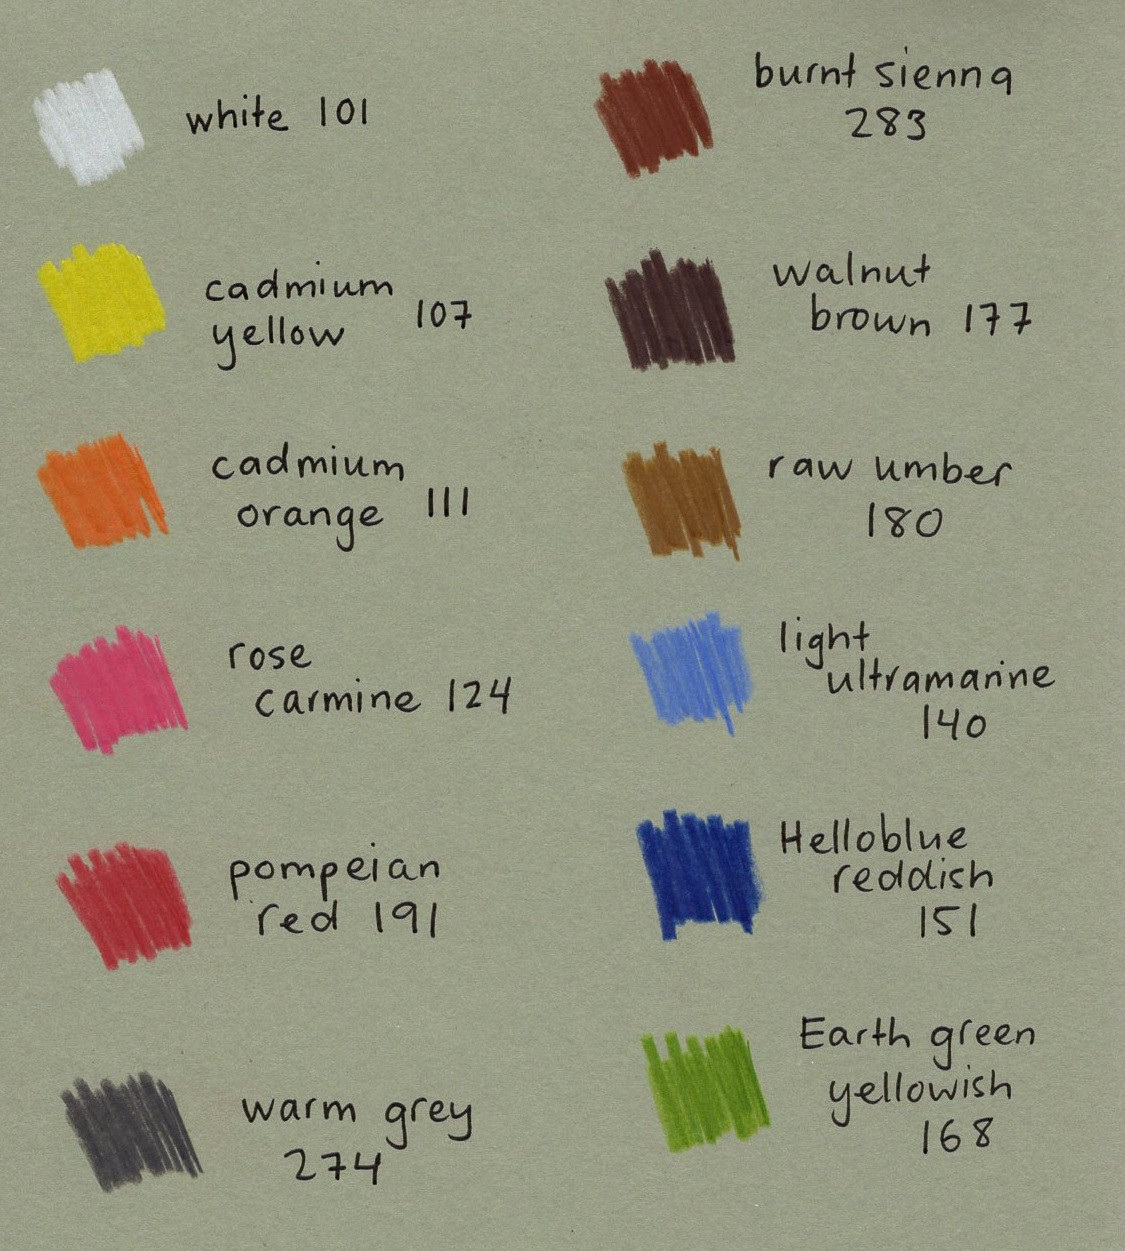 white 101
cadmium
yellow 107
cadmium
orange 111
rose
carmine 124
pompeian
red 191
warm grey
274
burnt sienna
283
walnut
brown 177
raw umber
180
light
ultramarine
140
Helloblue
reddish
151
Earth green
yellowish
168